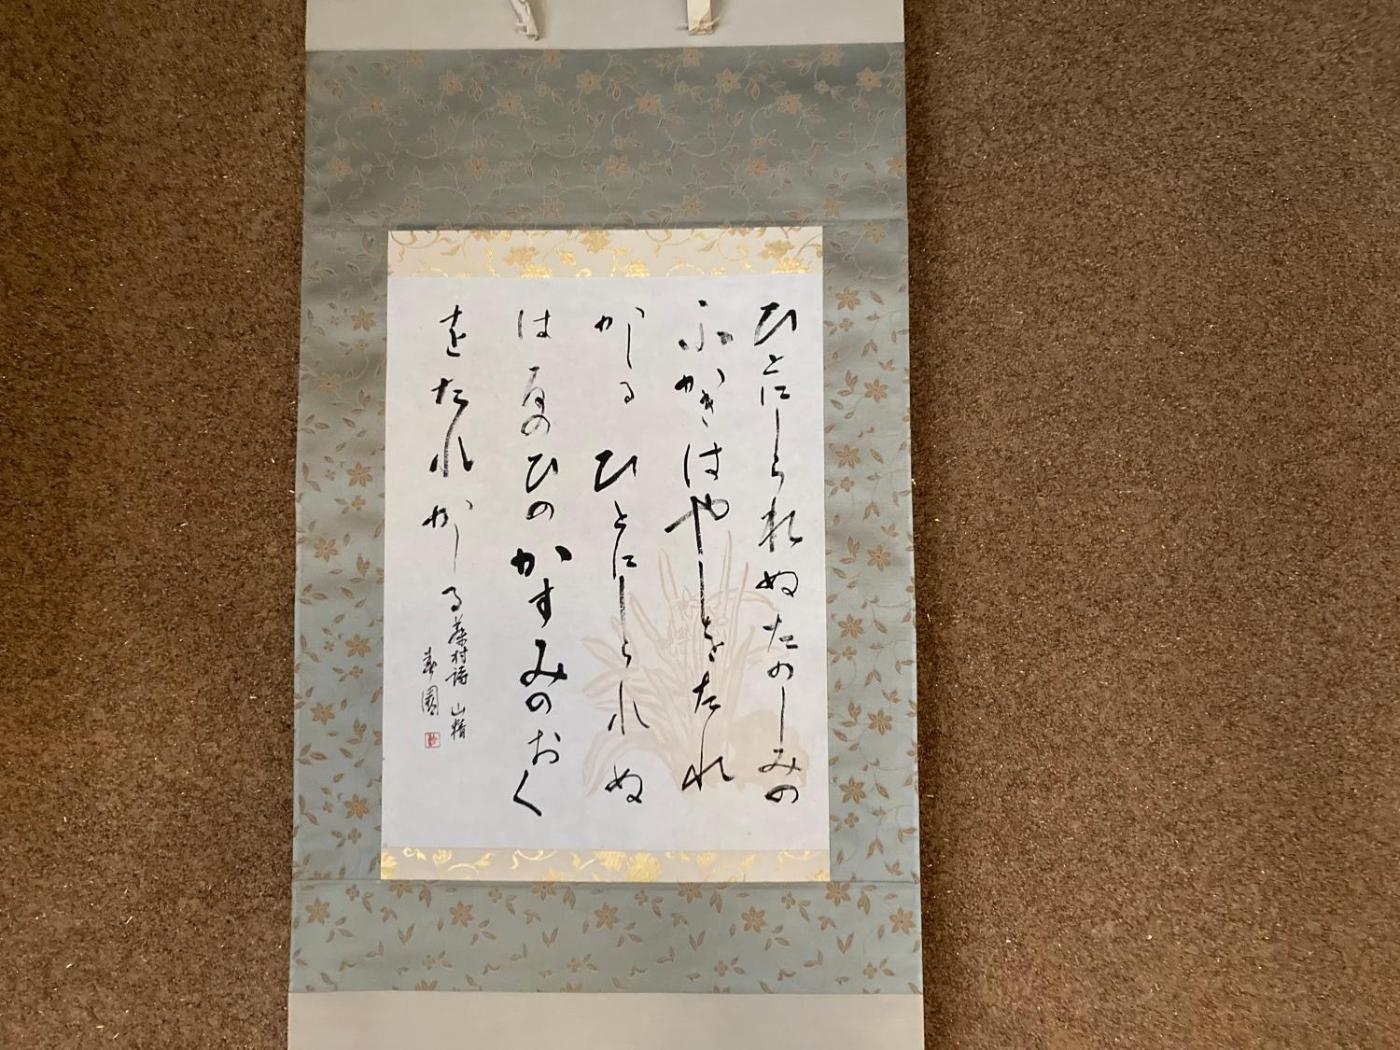 ひとにしられぬたのしみの
ふかきはやしをたれ
かしるひとにしられぬ
はるのひのかすみのおく
をたれかしる
藤村詩 山精
春園